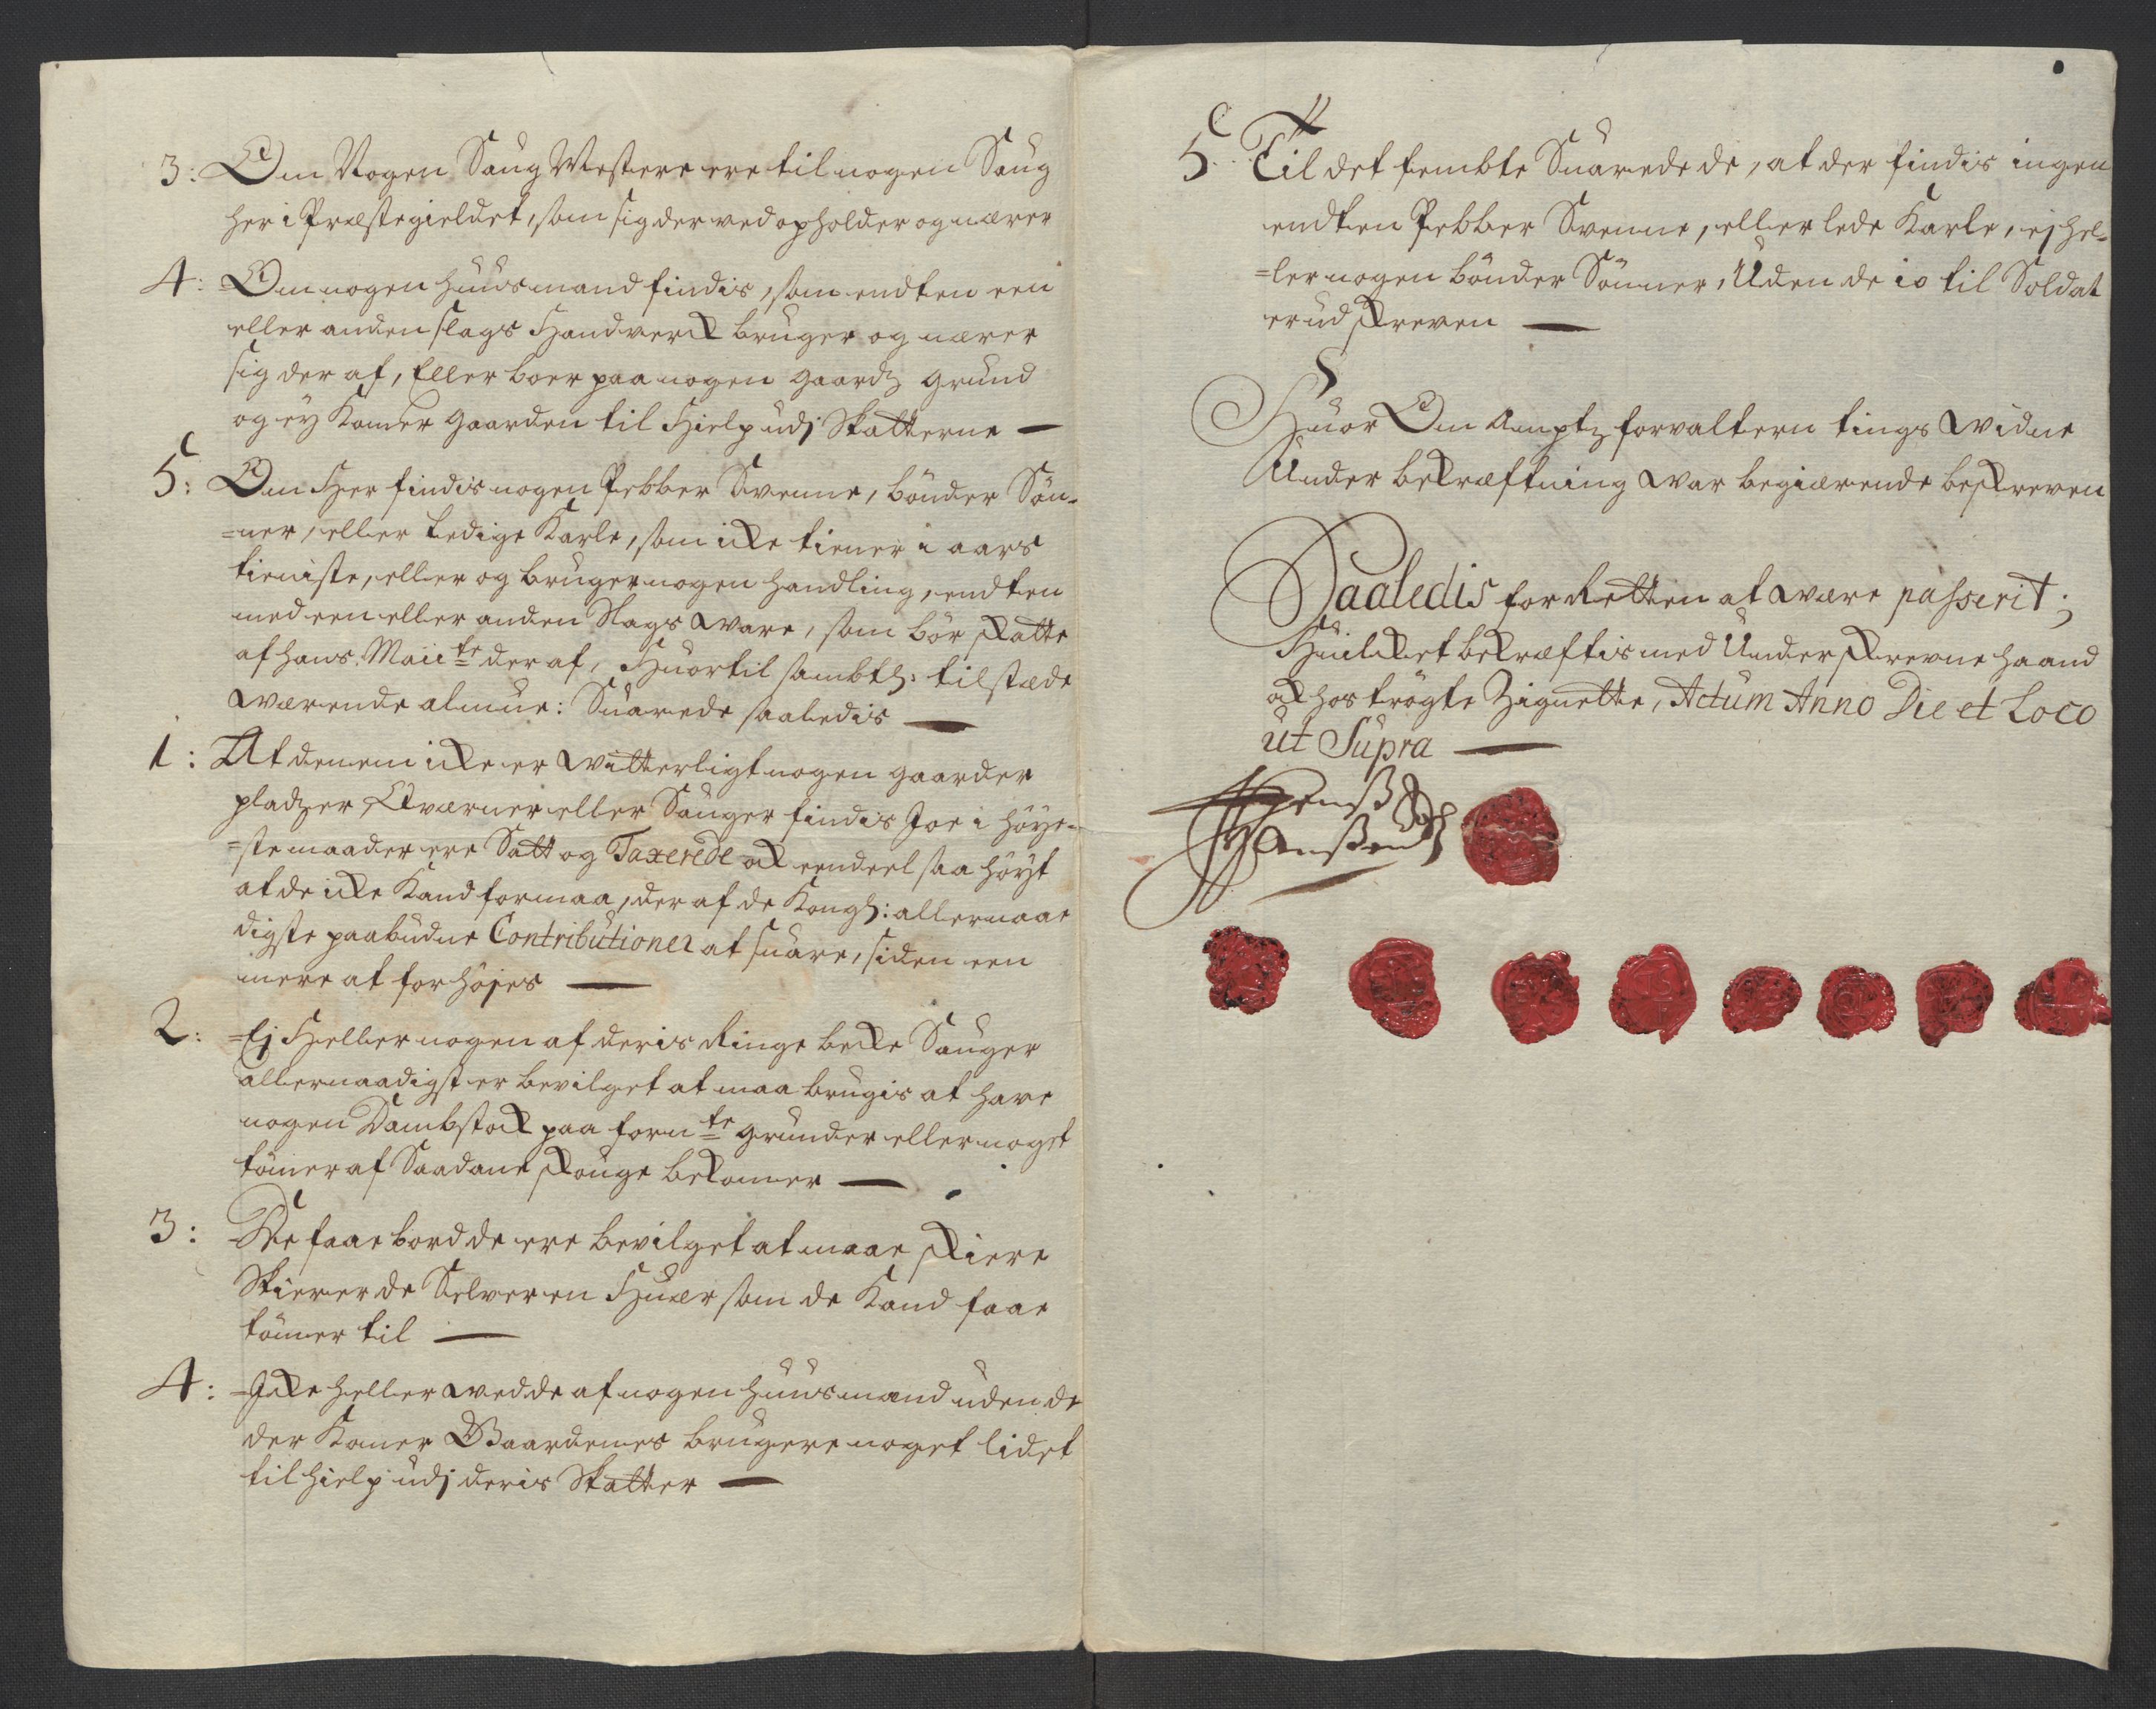 3: Om Nogen Saug Mestere ere til nogen Saug
her i Præstegieldet, som sig der ved opholder og nærer
4: Om nogen huusmand findis, som endten een
eller anden slags Handverk bruger og nærer
sig der af, Eller boer paa nogen gaardz grund
og ey Komer gaarden til Hielp udj Skatterne —
5: Om Her findis nogen Pebber Svenne, bönder Sön-
=ner, eller Ledige Karle, som icke tiener i aars
tieniste, eller og bruger nogen handling, endten
med een eller anden Slags ware, som bör skatte
af hans Maii te der af, Huortil sambtl: tilstæde
wærende almue: Suarede saaledis —
1: At denem icke er witterligt nogen gaarder
pladzer Qværner eller Sauger findis Joe i höye-
=ste maader ere Satt og Taxerede ok eendeel saa höyt
at de icke Kand formaa, der af de Kongl: allernaa
digste paabudne Contributioner at suare, siden een
mere at forhöjes —
2: =Ej Heller nogen af deris Ringe becke Sauger
allernaadigst er bevilget at maa brugis at have
nogen Dambstok paa forn te grunder eller noget
tömer af Saadane skouge bekomer —
3: De faae bord de ere bevilget at maae skiere
Skierer de Selver en Huær som de Kand faae
tömer til —
4: =Icke heller wed de af nogen huusmand uden de
der Komer Gaardenes brugere noget lidet
til hielp udj deris Skatter —
5 Til det fembte Suarede de, at der findis ingen
endten Pebber Svenne, eller lede Karle, ej hel-
=ler nogen bönder Sönner, Uden de io til Soldat
er udskreven —
Huor Om Amptz forvaltern tings widne
Under bekræftning war begiærende beskreven
Saaledis for Retten at være passerit;
Huilket bekræftis med Underskrevne haand
ok hos trögte Zignette, Actum Anno Die et Loco
ut Supra —